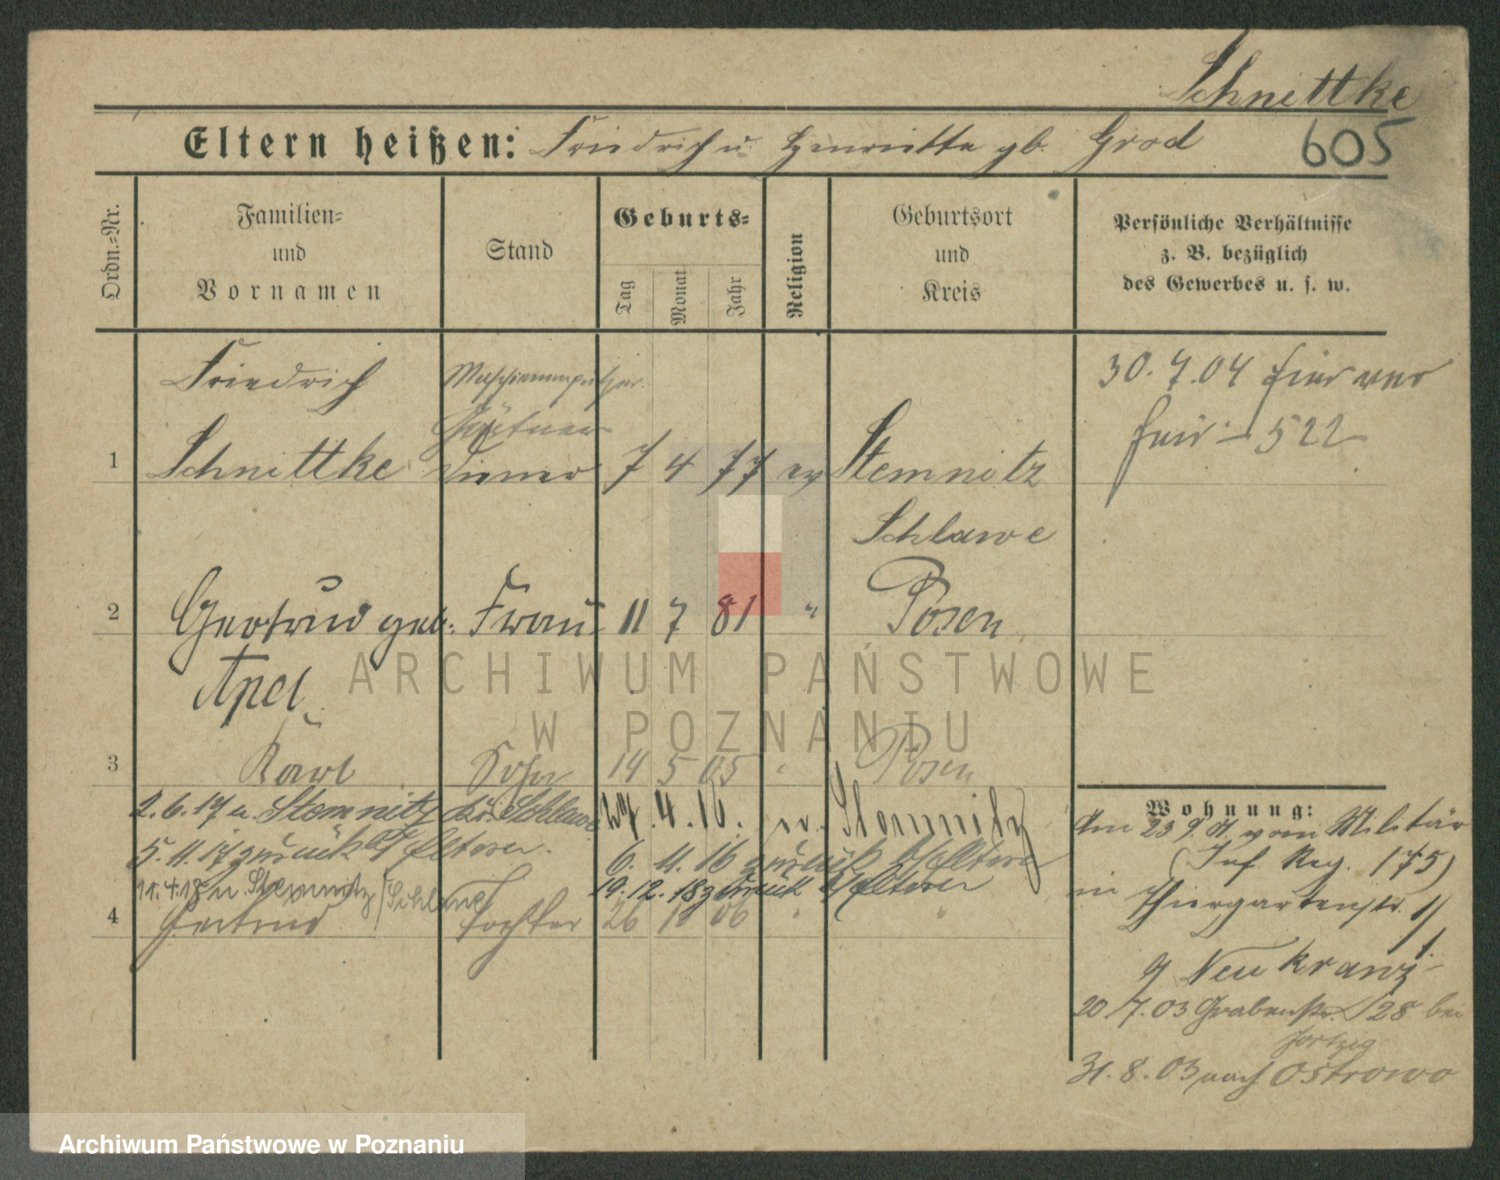 Schnittke
605
Eltern heißen: Friedrich u. Henriette gb. Grod
Ordn.-Nr.
Familien-
und
Vornamen
Stand
Geburts-
Tag
Monat
Jahr
Religion
Geburtsort
und
Kreis
Persönliche Verhältnisse
z. B. bezüglich
des Gewerbes u. s. w.
Friedrich Maschinenputzer 30.7.04 hier ver
Gärtner heir. 522
1 Schnittke Diener 7 4 77 ev Stemnitz
Schlawe
2 Gertrud geb. Frau 11 7 81 " Posen
Apel
3 Karl Sohn 14 5 05 " Posen
2.6.17 n. Stemnitz Kr. Schlawe 27.4.16. n. Stemnitz
5.11.17 zurück Eltern. 6.11.16 zurück Eltern
11.4.18 n Stemnitz/Schlawe 19.12.18 zurück Eltern
4 Gertrud Tochter 26 06 " "
Wohnung:
Am 23 9 vom Militär
(Inf. Reg. 175)
in Thiergartenstr. 1
Neukranz
20/7.03 Grabenstr. 28 bei
31.8.03 nach Ostrowo
ARCHIWUM PAŃSTWOWE
W POZNANIU
Archiwum Państwowe w Poznaniu